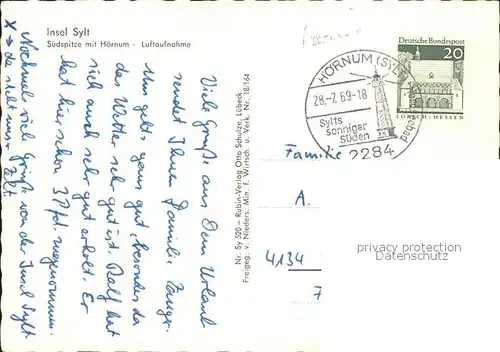 Insel Sylt
Südspitze mit Hörnum - Luftaufnahme
Viele Grüße aus dem Urlaub
sendet Ihnen Familie
Uns geht's ganz gut, besonders da
das Wetter sehr gut ist. Ralf hat
sich auch sehr gut erholt. Er
hat hier schon 3 Pfd. zugenommen.
Nochmal viel Grüße von der Insel Sylt.
X → da steht unser Zelt
Nr. Sy 520 - Rubin-Verlag Otto Schulze, Lübeck
Freigeg. v. Nieders. Min. f. Wirtsch. u. Verk. Nr. 18/164
HÖRNUM (SYLT)
28.-7.69-18
Sylts
sonniger
Süden
2284
Deutsche Bundespost
20
LORSCH/HESSEN
Familie
A.
4134
7
privacy protection
Datenschutz